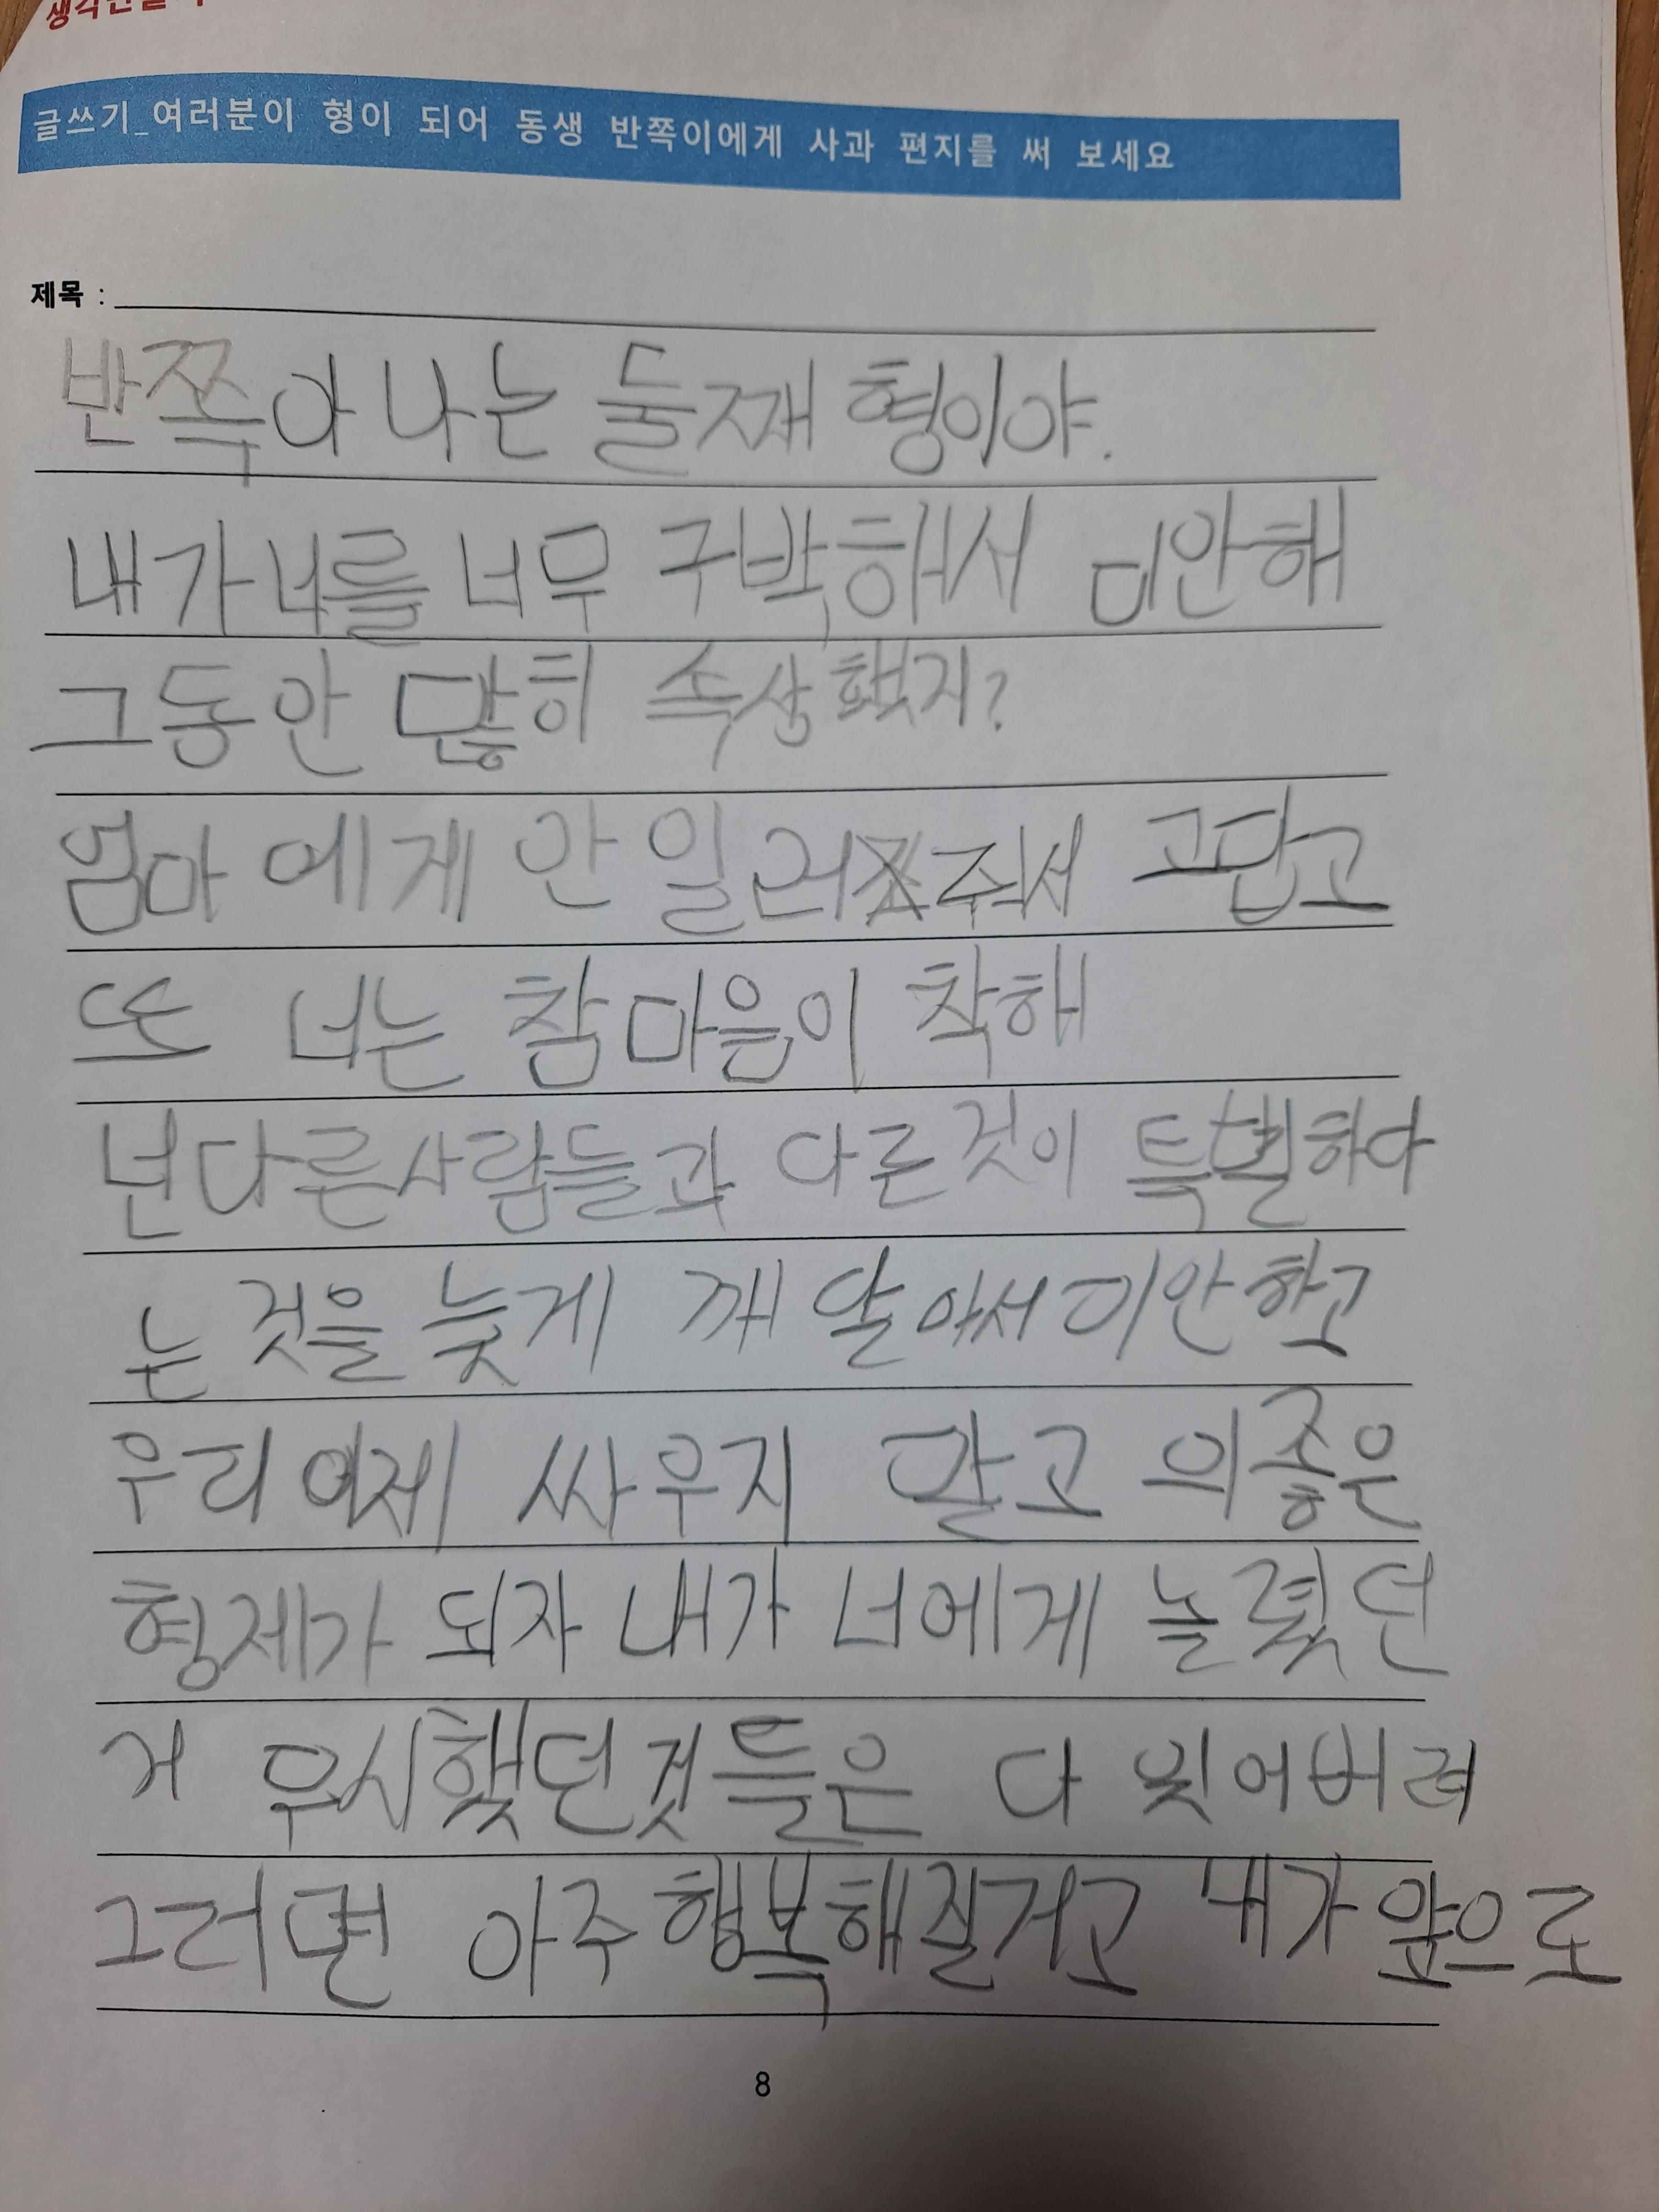 글쓰기_여러분이 형이 되어 동생 반쪽이에게 사과 편지를 써 보세요
제목 :
반쪽아 나는 둘째 형이야.
내가 너를 너무 구박해서 미안해
그동안 많히 속상했지?
엄마에게 안 일러 줘서 고맙고
또 너는 참 마음이 착해
넌 다른사람들과 다른것이 특별하다
는 것을 늦게 깨달아서 미안하고
우리 이제 싸우지 말고 의좋은
형제가 되자 내가 너에게 놀렸던
거 무시했던것들은 다 잊어버려
그러면 아주 행복해질거고 내가 앞으로
8